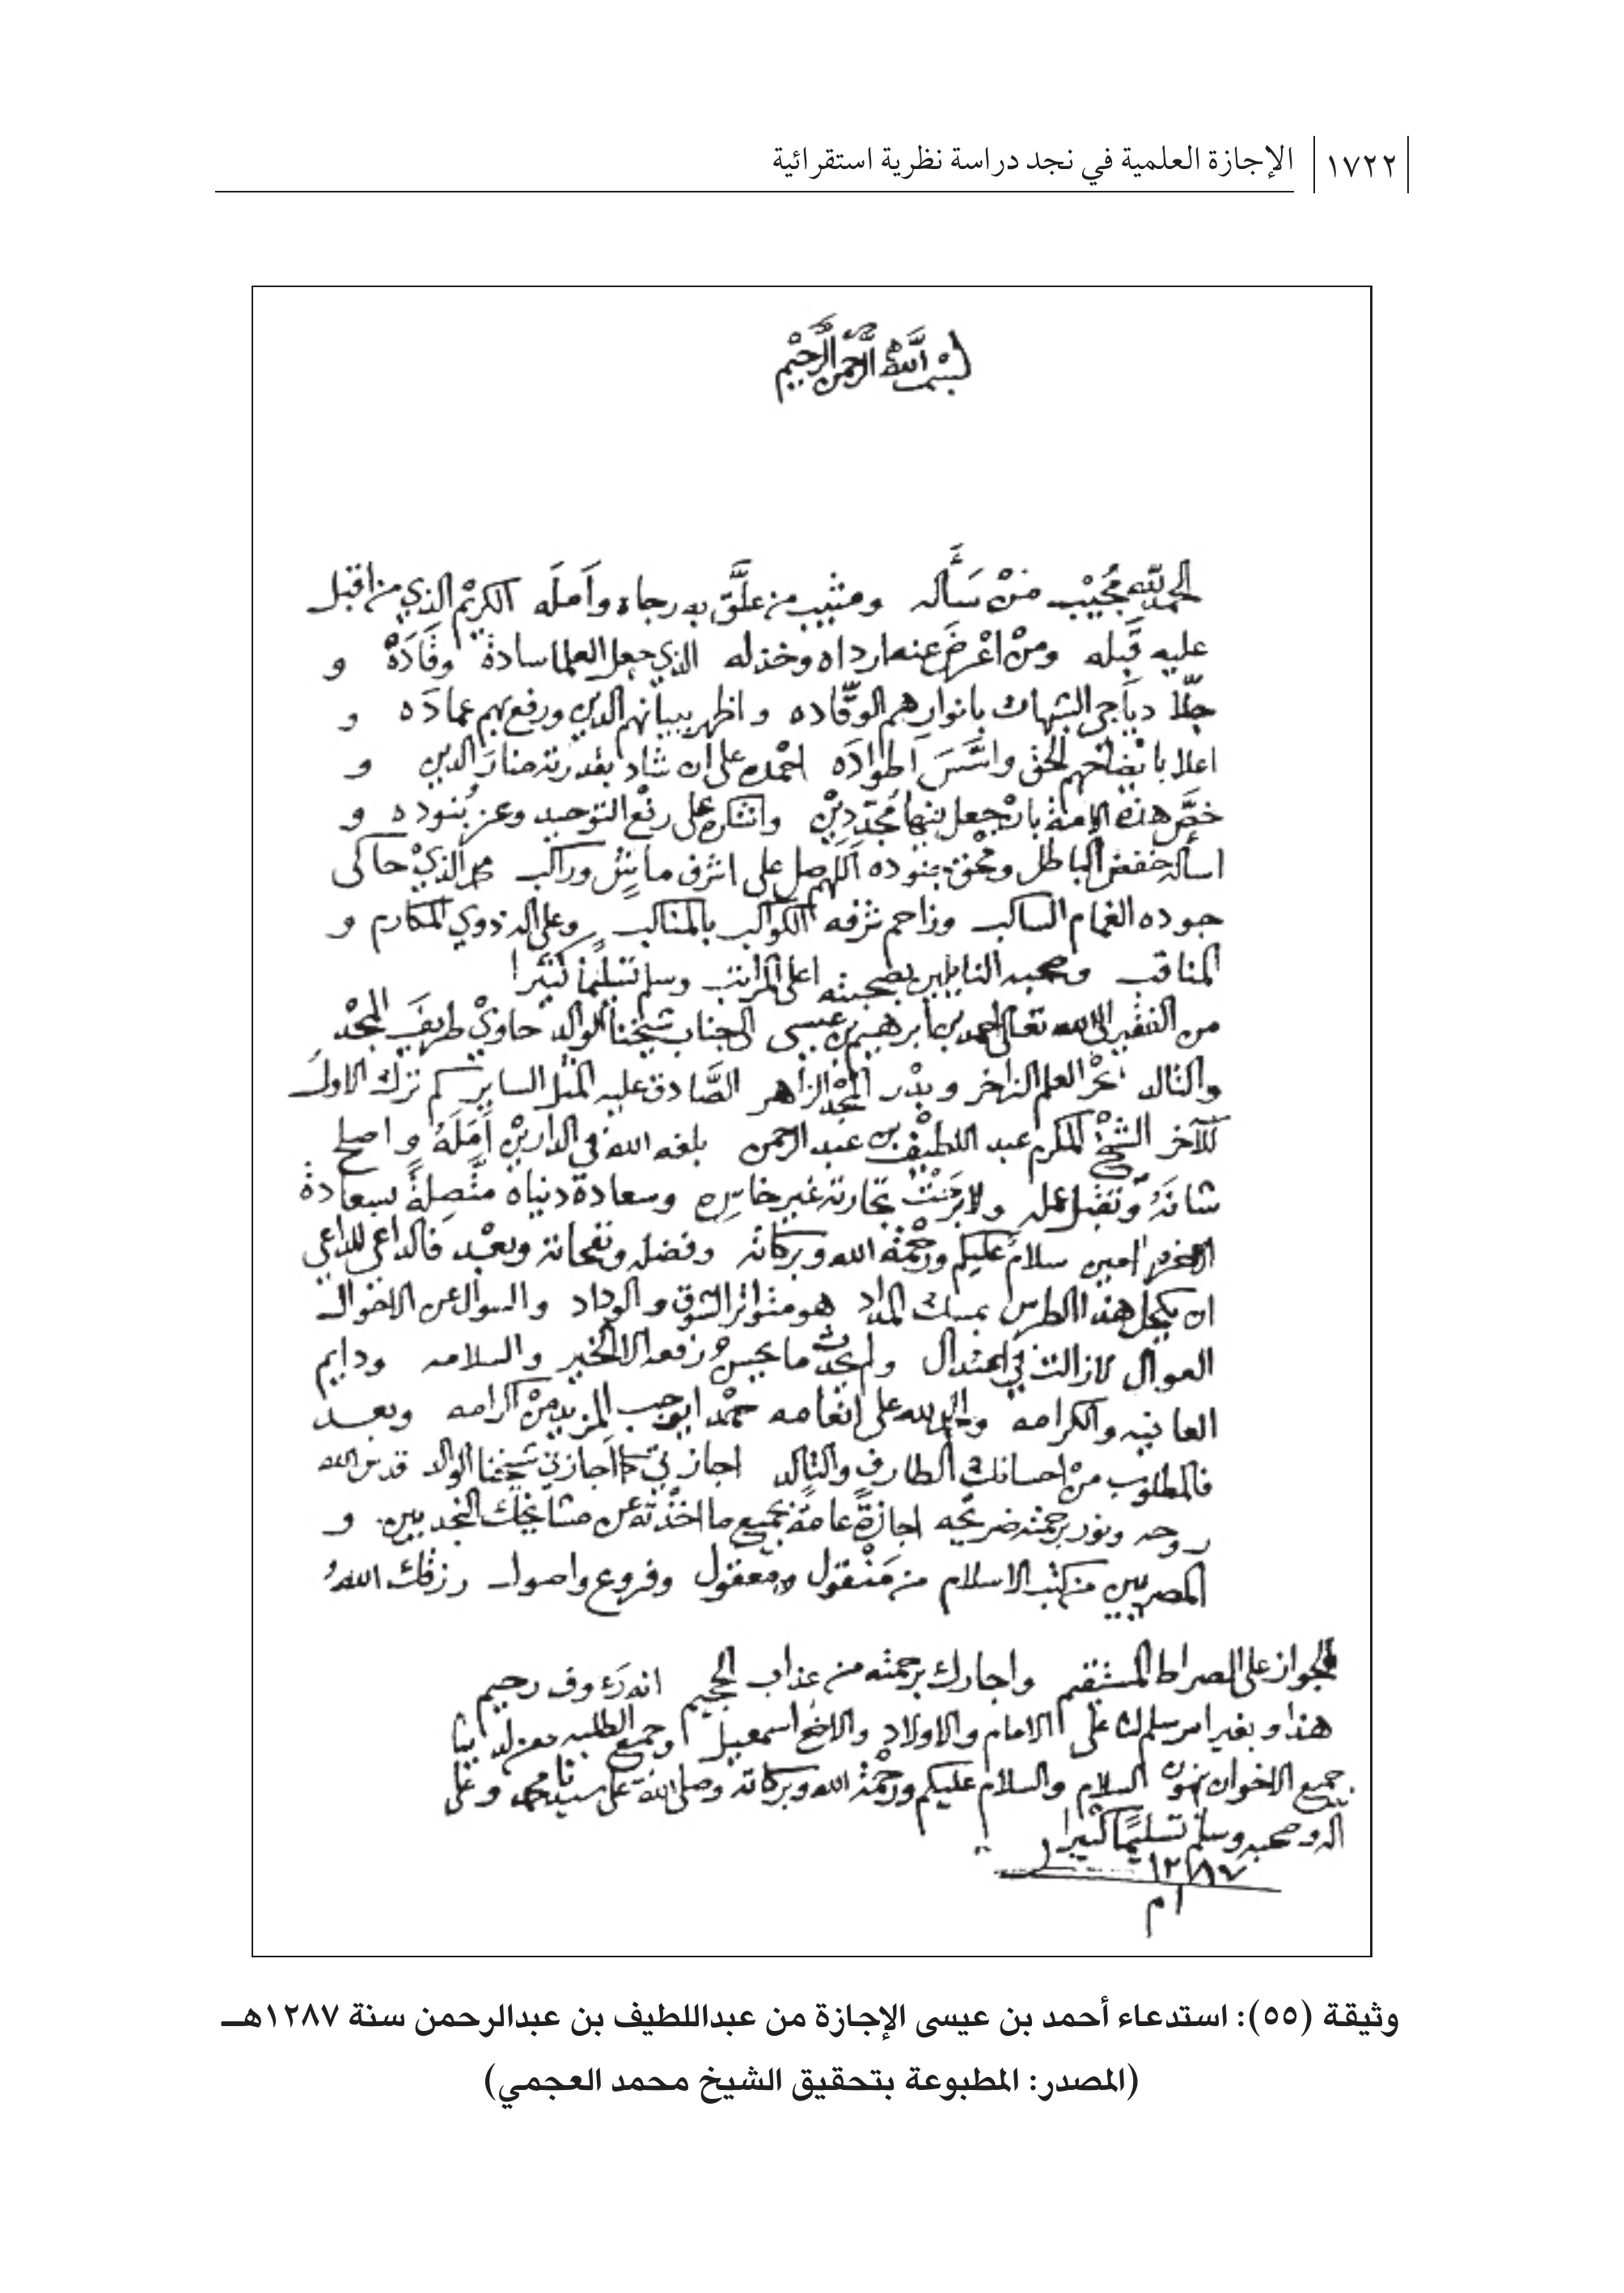 ١٧٢٢ الإجازة العلمية في نجد دراسة نظرية استقرائية
بسم الله الرحمن الرحيم
الحمد لله مجيب من سأله ومثيب من علّق به رجاه وأمله الكريم الذي من اقبل
عليه قبله ومن اعرض عنه ارداه وخذله الذي جعل العلما سادة وقادة و
جلا دياجي الشبهات بانوارهم الوقّاده واظهر ببيانهم الدين ورفع بهم عماده و
اعلا بايضاحهم الحق واسّس اطواده احمده على ان شاد بقدرته منار الدين و
خصّ هذه الامة بان جعل فيها مجدّدين واشكره على رفع التوحيد وعز بنوده و
اسأله خفض الباطل ومحق جنوده اللهم صل على اشرف ماش وراكب محمد الذي حاكى
جوده الغمام الساكب وزاحم شرفه الكواكب بالمناكب وعلى اله ذوي المكارم و
المناقب وصحبه النايلين بصحبته اعلى المراتب وسلم تسليما كثيرا
من الفقير الى الله تعالى احمد بن ابرهيم بن عيسى الى جناب شيخنا الوالد حاوي طريف المجد
والتالد بحر العلم الزاخر وبدر المجد الزاهر الصّادق عليه المثل الساير كم ترك الاول
للآخر الشيخ المكرم عبد اللطيف بن عبد الرحمن بلغه الله في الدارين أمله واصلح
شانه وتقبل عمله ولا برحت تجارته غير خاسره وسعادة دنياه متّصلة بسعادة
الاخره امين سلام عليكم ورحمة الله وبركاته وفضله ونفحاته وبعد فالداعي للداعي
ان يكحل هذا الطرس بمسك المداد هو متواتر الشوق والوداد والسوال عن الاحوال
العوال لازالت في اعتدال ولم يحدث ما يحسن رفعه الا الخير والسلامه ودايم
العافيه والكرامه والحمد لله على انعامه حمدا يوجب المزيد من اكرامه وبعد
فالمطلوب من احسانك الطارف والتالد اجازتي كما اجازني شيخنا الوالد قدس الله
روحه ونور برحمته ضريحه اجازة عامة بجميع ما اخذته عن مشايخك النجديين و
المصريين من كتب الاسلام من منقول ومعقول وفروع واصول رزقك الله
الجواز على الصراط المستقيم واجارك برحمته من عذاب الجحيم انه رءوف رحيم
هذا وبغير امر سلم لنا على الامام والاولاد والاخ اسمعيل وجميع الطلبه
جميع الاخوان ينهون السلام والسلام عليكم ورحمة الله وبركاته وصلى الله على سيدنا محمد وعلى
اله وصحبه وسلم تسليما كثيرا
١٢٨٧
وثيقة (٥٥): استدعاء أحمد بن عيسى الإجازة من عبداللطيف بن عبدالرحمن سنة ١٢٨٧هـ
(المصدر: المطبوعة بتحقيق الشيخ محمد العجمي)